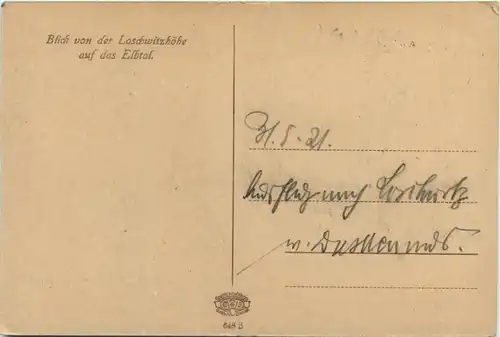 Blick von der Loschwitzhöhe
auf das Elbtal.
31.5.21.
Ausflug nach Loschwitz
648 B